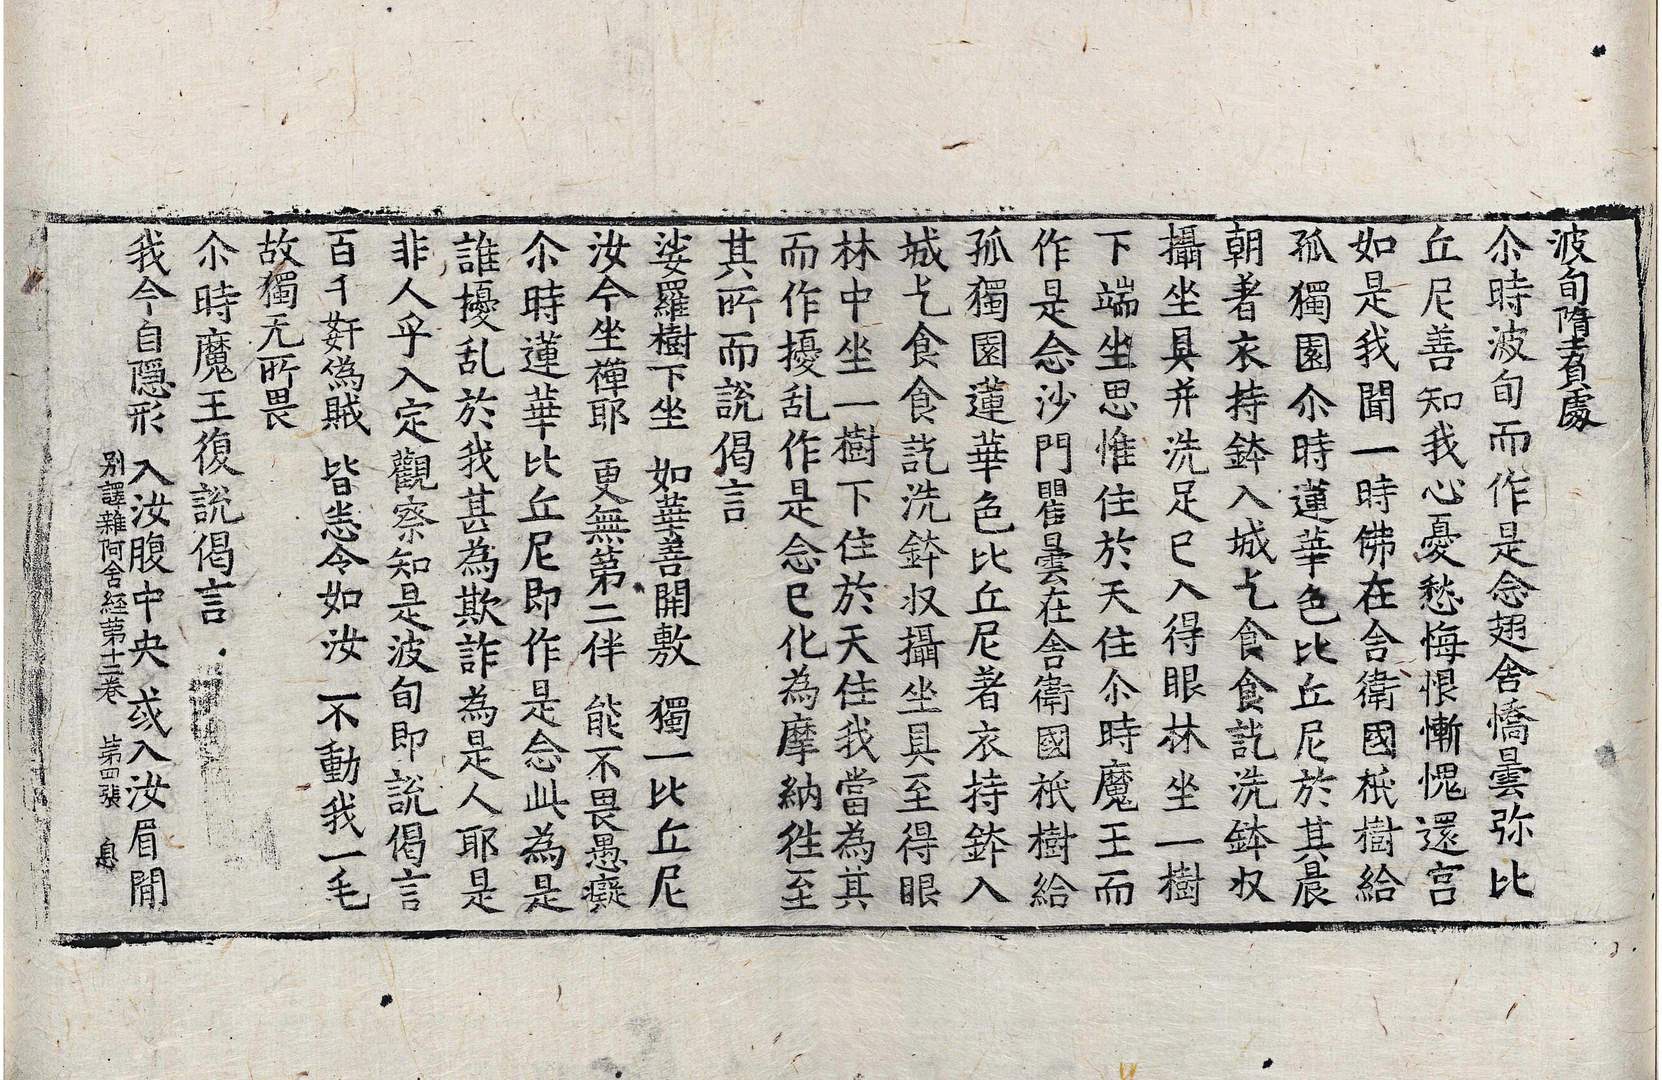 波旬墮負處
尒時波旬而作是念翅舍憍曇弥比
丘尼善知我心憂愁悔恨慚愧還宮
如是我聞一時佛在舍衛國祇樹給
孤獨園尒時蓮華色比丘尼於其晨
朝著衣持鉢入城乞食食訖洗鉢収
攝坐具并洗足已入得眼林坐一樹
下端坐思惟住於天住尒時魔王而
作是念沙門瞿曇在舍衛國祇樹給
孤獨園蓮華色比丘尼著衣持鉢入
城乞食食訖洗鉢収攝坐具至得眼
林中坐一樹下住於天住我當為其
而作擾乱作是念已化為摩納徃至
其所而說偈言
娑羅樹下坐　如華善開敷　獨一比丘尼
汝今坐禪耶　更無第二伴　能不畏愚癡
尒時蓮華比丘尼即作是念此為是
誰擾乱於我甚為欺詐為是人耶是
非人乎入定觀察知是波旬即說偈言
百千姧偽賊　皆悉令如汝　不動我一毛
故獨无所畏
尒時魔王復說偈言
我今自隱形　入汝腹中央　或入汝眉間
別譯雜阿含経第十二卷　第四張　息